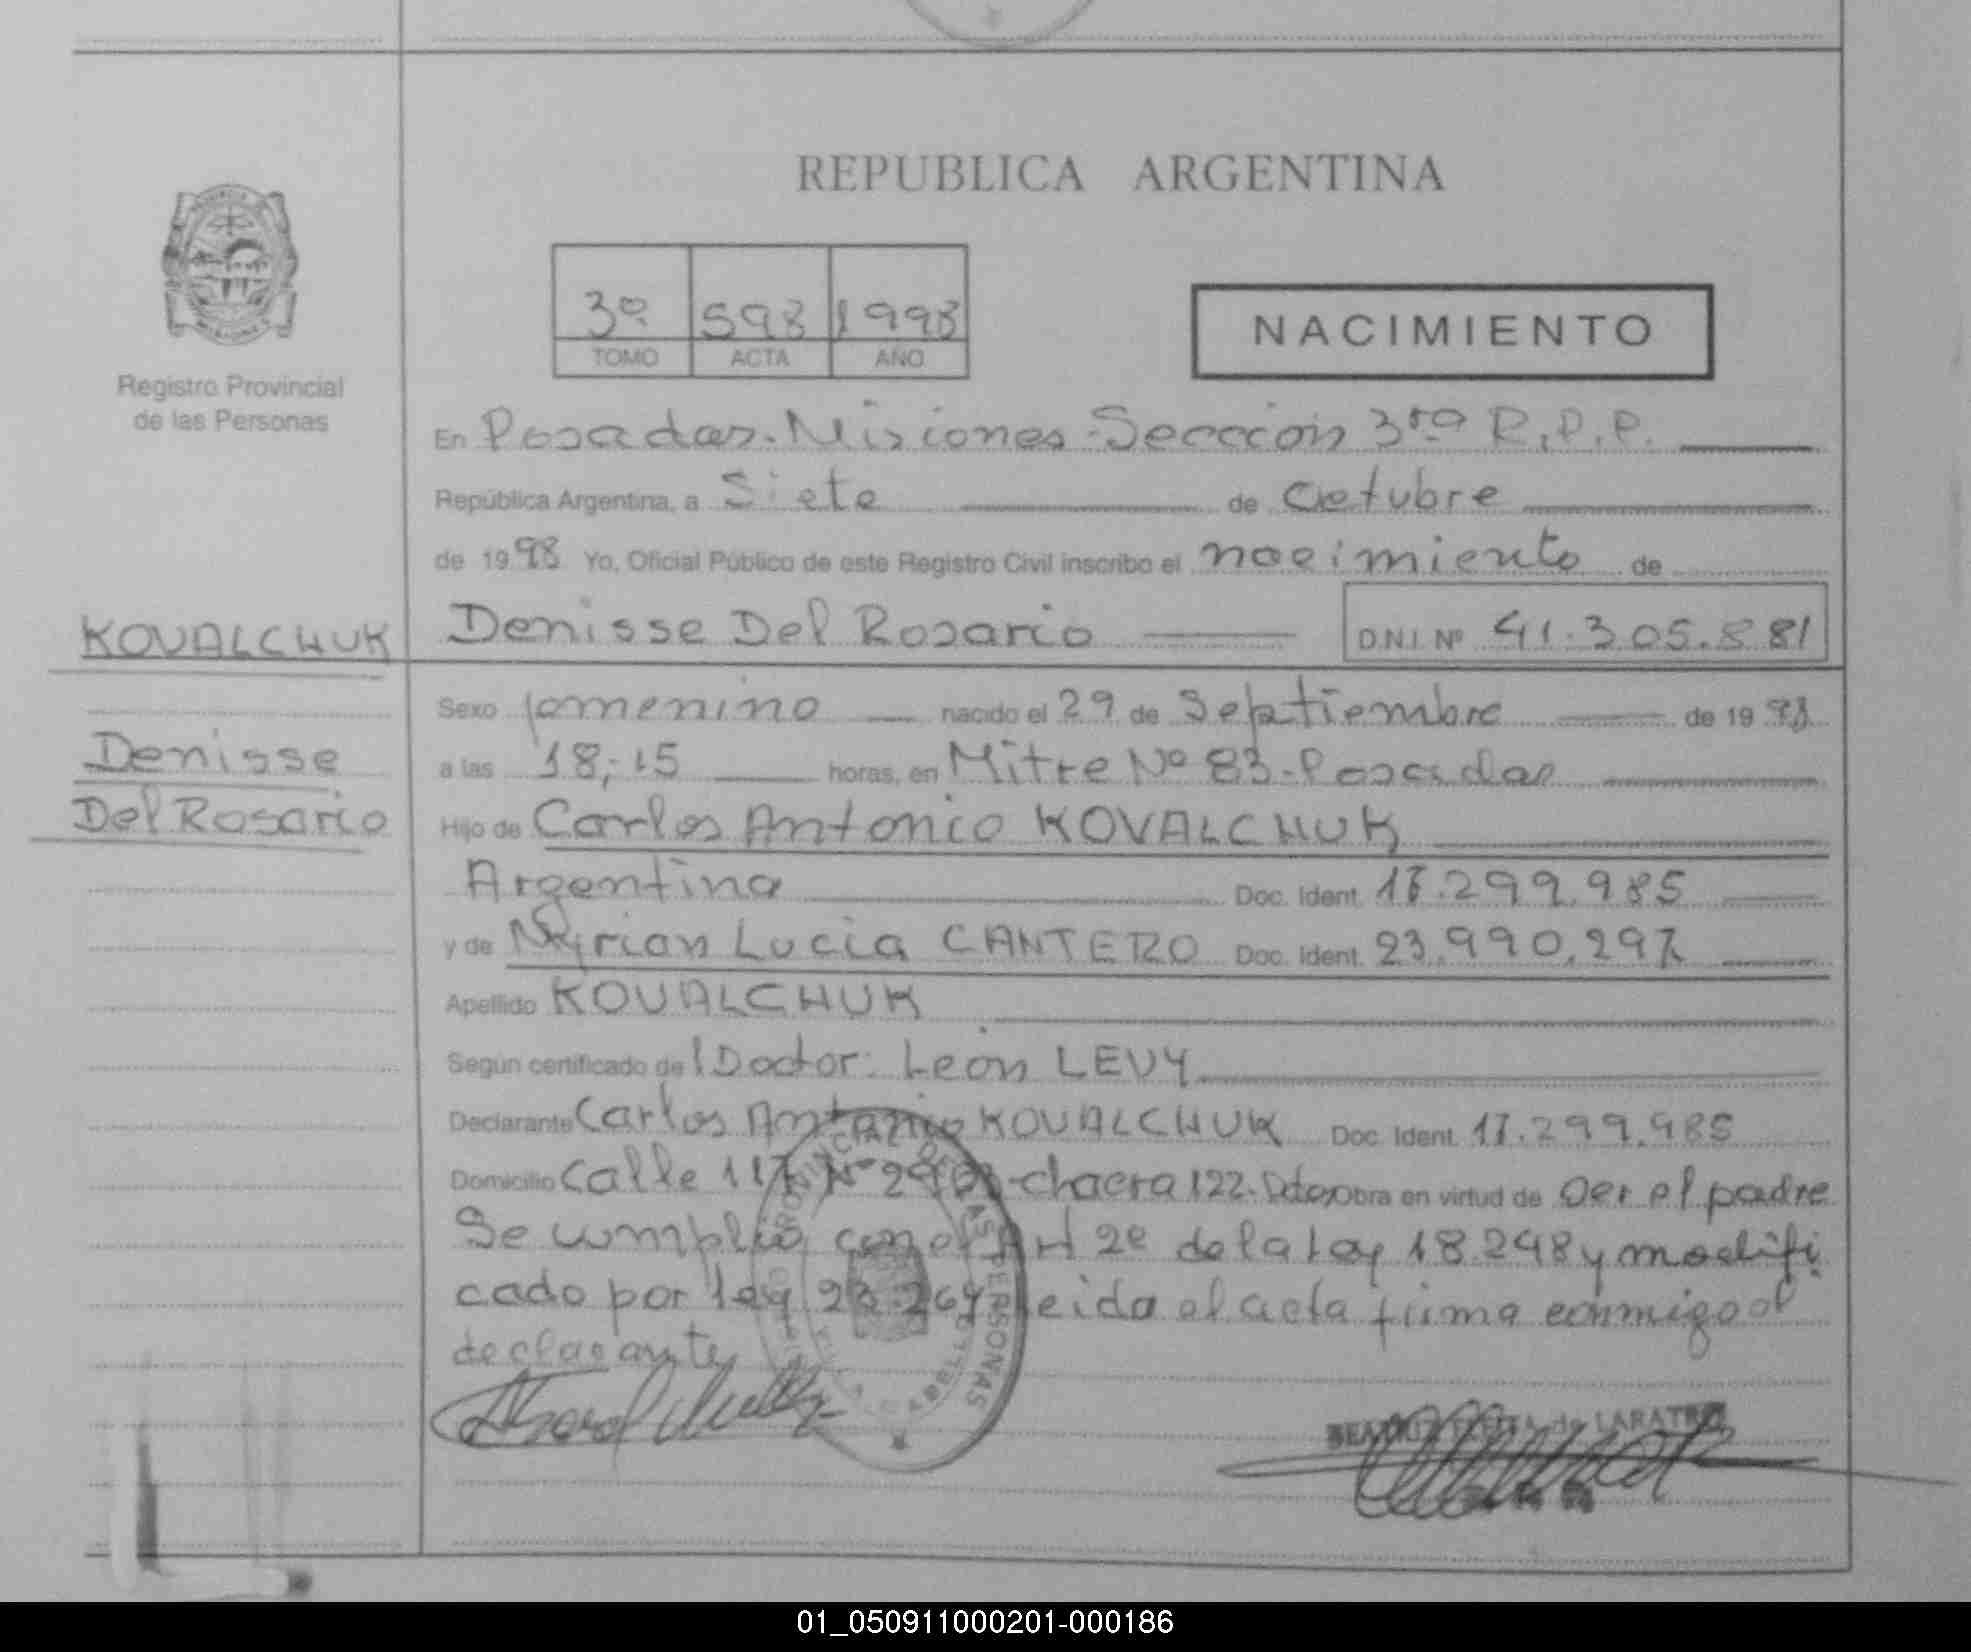 REPUBLICA ARGENTINA
3º 598 1998
TOMO ACTA AÑO
NACIMIENTO
Registro Provincial
de las Personas
En Posadas-Misiones-Sección 3ra R.P.P.
República Argentina, a Siete de Octubre
de 1998 Yo, Oficial Público de este Registro Civil inscribo el nacimiento de
KOVALCHUK
Denisse Del Rosario D.N.I. Nº 41.305.881
Sexo femenino nacido el 29 de Septiembre de 1998
Denisse
a las 18,15 horas, en Mitre Nº 83-Posadas
Del Rosario
Hijo de Carlos Antonio KOVALCHUK
Argentina Doc. Ident. 17.299.985
y de Myrian Lucia CANTERO Doc. Ident. 23.990.297
Apellido KOVALCHUK
Según certificado del Doctor: León LEVY
Declarante Carlos Antonio KOVALCHUK Doc. Ident. 17.299.985
Domicilio Calle 117 Nº -chacra 122. Obra en virtud de ser el padre
Se cumplió con el Art 2º de la ley 18.248 y modifi
cado por ley 23.264 leida el acta firma conmigo el
declarante
PROVINCIAL DE LAS PERSONAS
de LARATRO
01_050911000201-000186